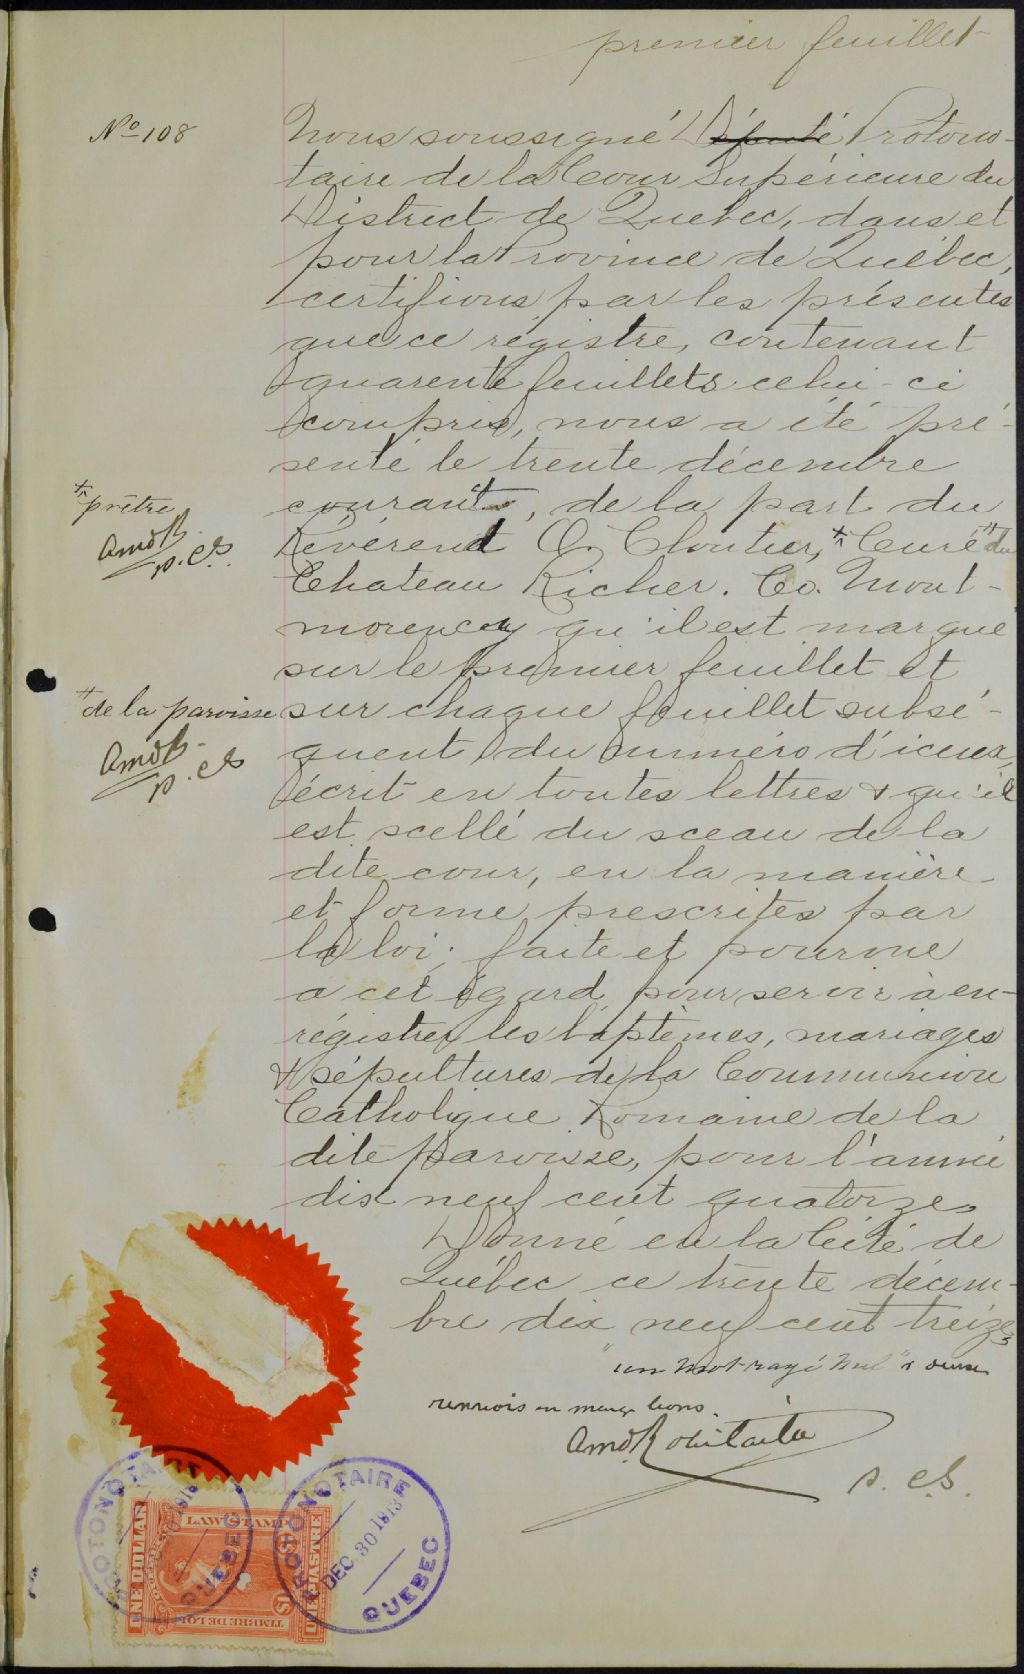 premier feuillet
No 108
Nous soussigné Député Protono-
taire de la Cour Supérieure du
District de Québec, dans et
pour la Province de Québec,
certifions par les présentes
que ce régistre, contenant
quarente feuillets celui-ci
compris, nous a été pré-
senté le trente décembre
courant, de la part du
Révérend O. Cloutier, * Curé " du
Chateau Richer. Co. Mont-
morency qu'il est marque
sur le premier feuillet et
sur chaque feuillet subsé-
quent du numéro d'iceux,
écrit en toutes lettres & qu'il
est scellé du sceau de la
dite cour, en la manière
et forme prescrites par
la loi; faite et pourvue
a cet égard pour servir à en-
régistrer les baptêmes, mariages
& sépultures de la Communion
Catholique Romaine de la
dite paroisse, pour l'année
dix neuf cent quatorze
Donné en la Cité de
Québec ce trente décem-
bre dix neuf cent treize
"un mot rayé nul" &
renvois en marge bons.
Amd Robitaille
p. c.s.
* prêtre
AmdR
p. c.s.
" de la paroisse
AmdR
p. c.s
PROTONOTAIRE
QUEBEC
PROTONOTAIRE
DEC 30 1913
QUEBEC
LAW STAMP
ONE DOLLAR
UNE PIASTRE
TIMBRE DE LOI
$1